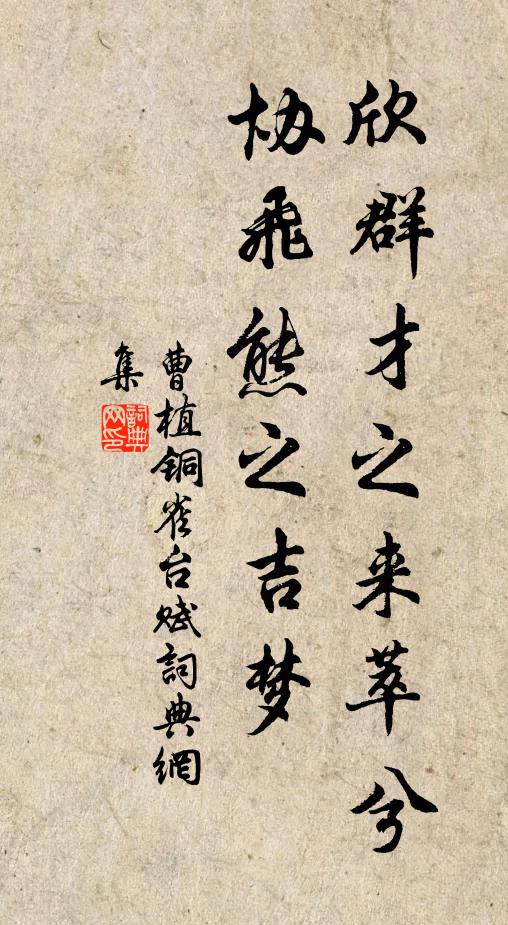 欣群才之来萃兮
协飛熊之吉梦
曹植铜雀台赋詞典網
集
詞典网印